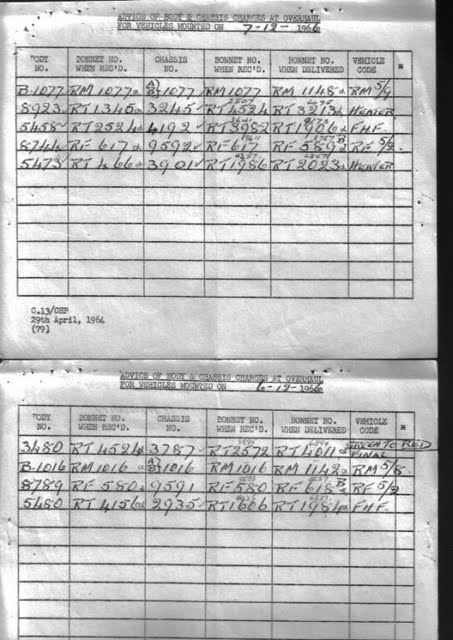 ADVICE OF BODY & CHASSIS CHANGES AT OVERHAUL
FOR VEHICLES MOUNTED ON 7-12-1966
BODY NO. BONNET NO. WHEN REC'D. CHASSIS NO. BONNET NO. WHEN REC'D. BONNET NO. WHEN DELIVERED VEHICLE CODE
B.1077 RM 1077 1077 RM1077 RM 1148 RM 5/9
8923 RT1345 3245 RT4524 RT3213 HEAVER
5458 RT2524 4192 RT3982 RT1906 FHF
8744 RF 617 9592 RF 617 RF 589 B RF 5/2
5473 RT 466 3901 RT1986 RT2023 HEAVER
C.13/CHP
29th April, 1964
(79)
ADVICE OF BODY & CHASSIS CHANGES AT OVERHAUL
FOR VEHICLES MOUNTED ON 6-12-1966
BODY NO. BONNET NO. WHEN REC'D. CHASSIS NO. BONNET NO. WHEN REC'D. BONNET NO. WHEN DELIVERED VEHICLE CODE
3480 RT4524 3787 RT2572 RT4011 GREEN TO RED FINAL
B.1016 RM1016 1016 RM1016 RM 1142 RM 5/8
8789 RF 580 9591 RF580 RF 618 B RF 5/2
5480 RT 4156 2935 RT1606 RT1984 FHF